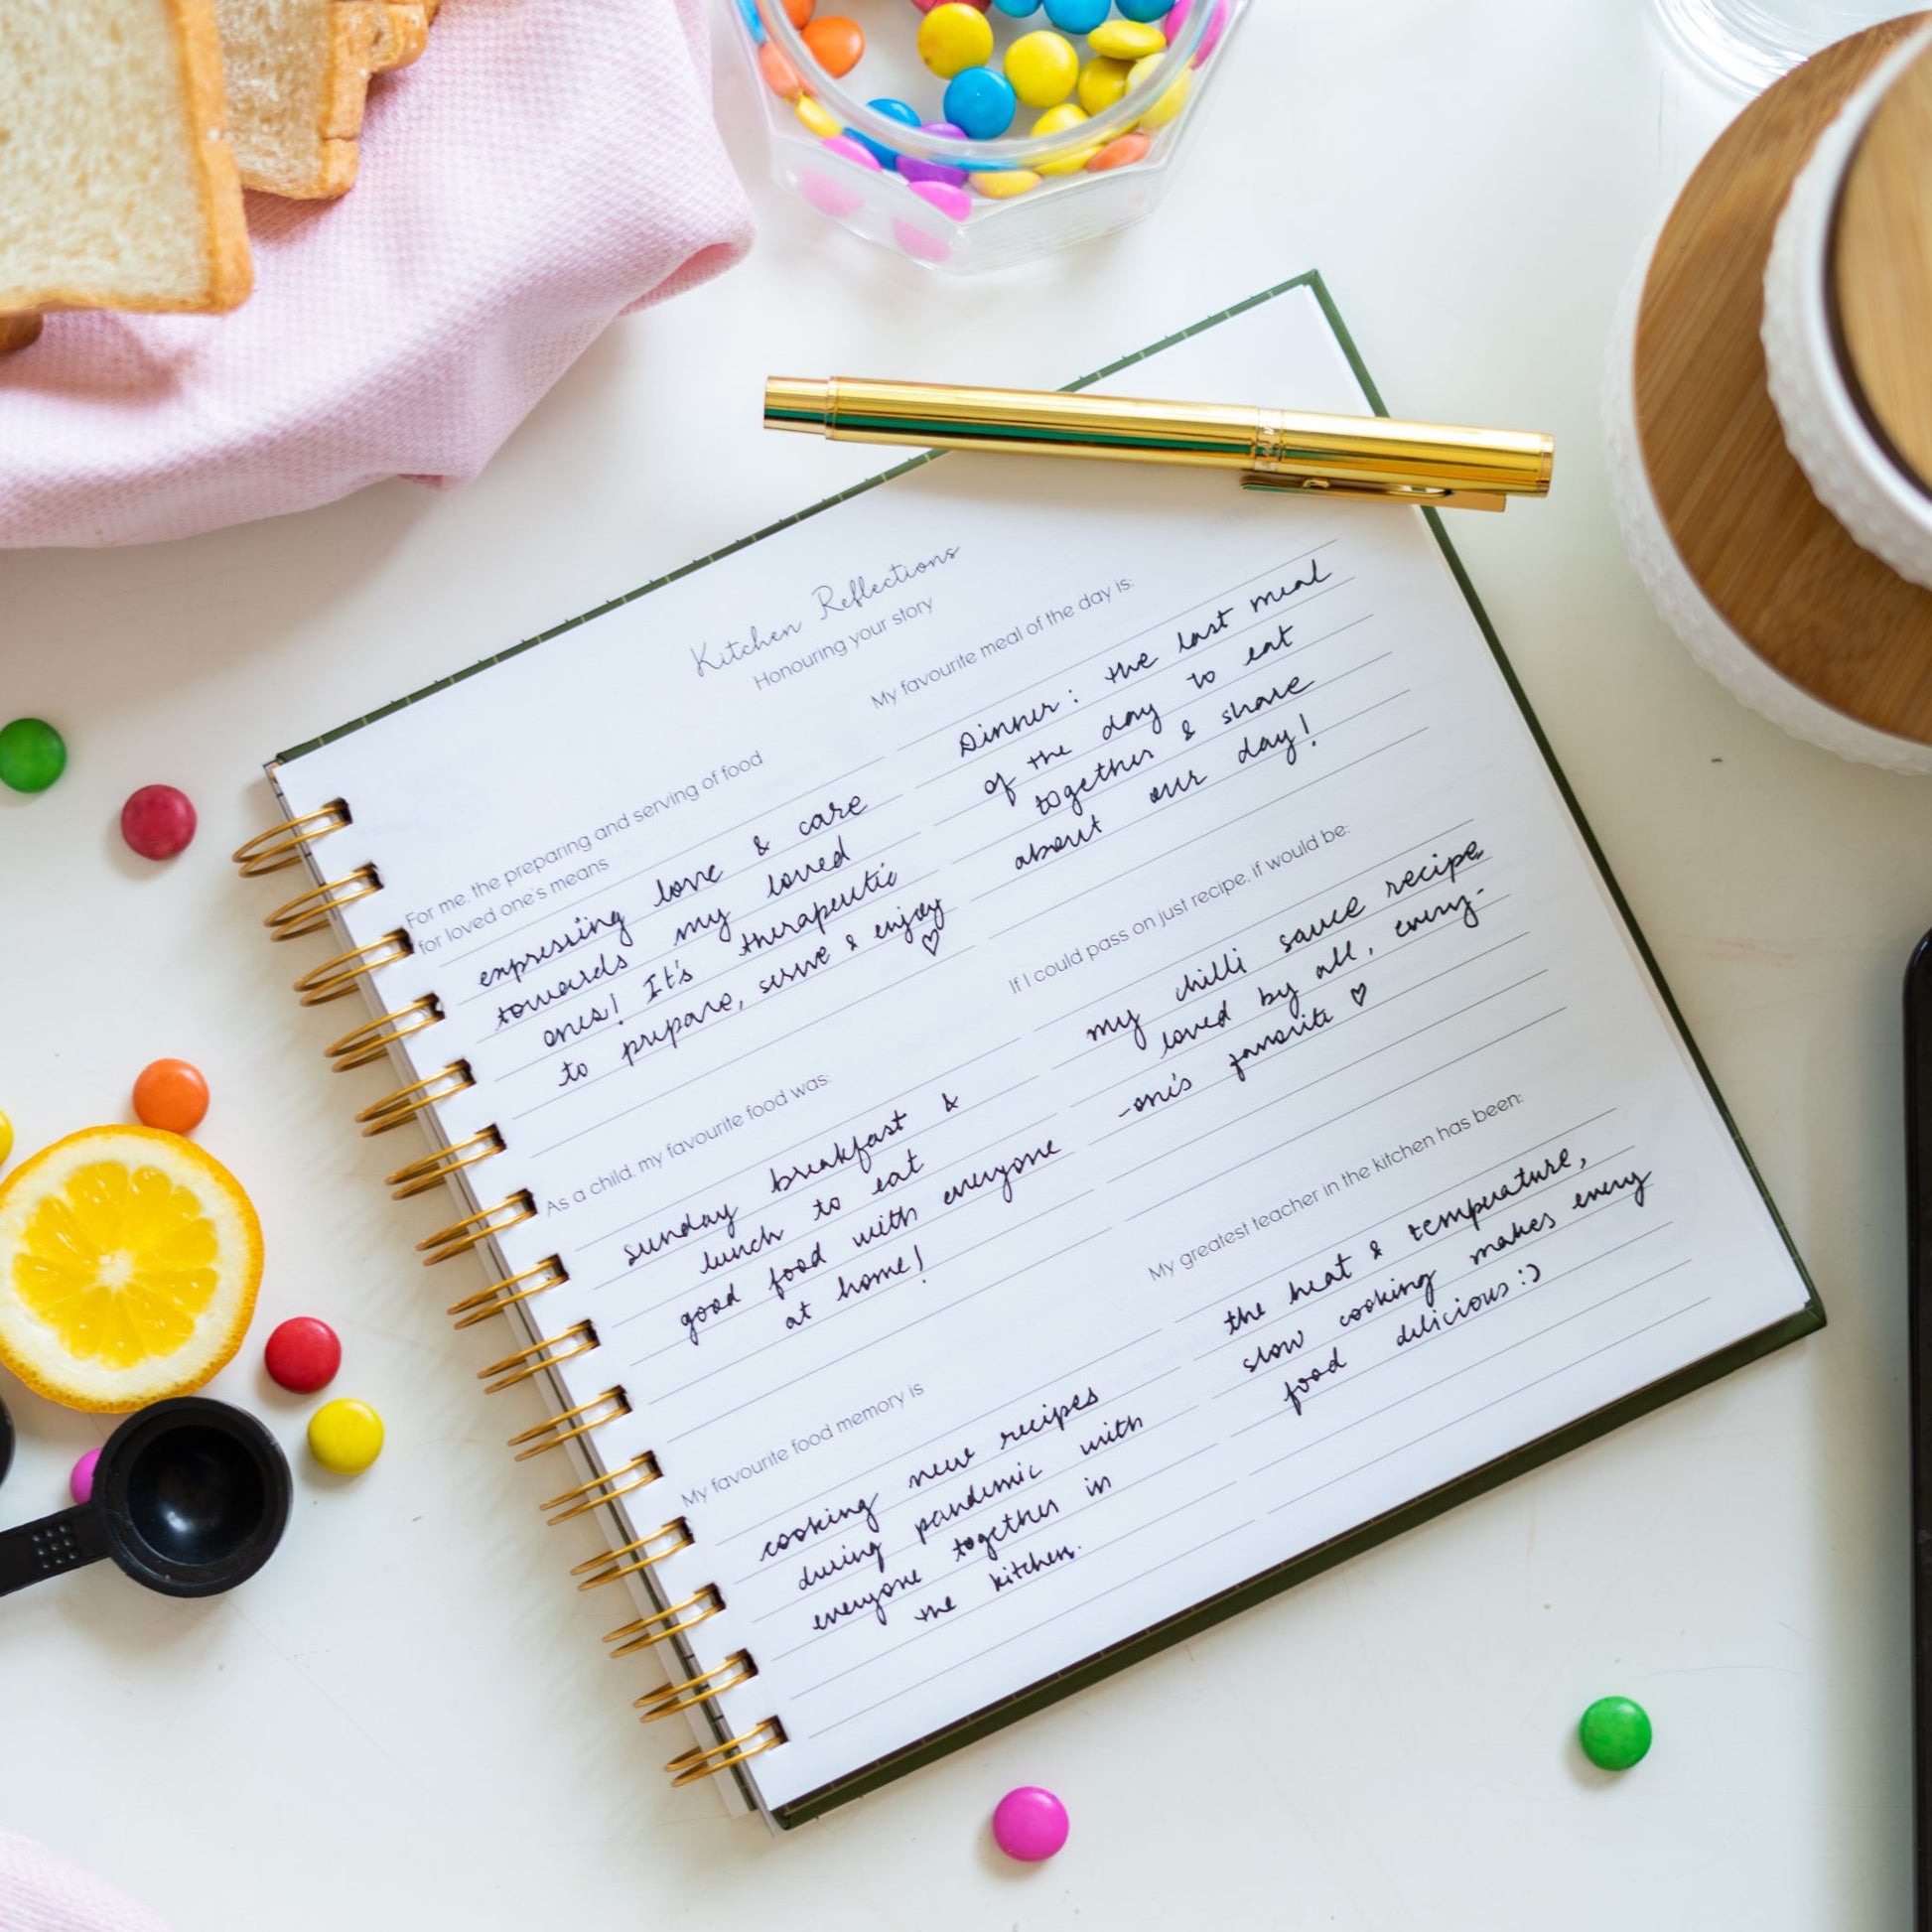 Kitchen Reflections
Honouring your story
For me, the preparing and serving of food
for loved one's means
expressing love & care
towards my loved
ones! It's therapeutic
to prepare, serve & enjoy ♡
As a child, my favourite food was:
sunday breakfast &
lunch to eat
good food with everyone
at home!
My favourite food memory is
cooking new recipes
during pandemic with
everyone together in
the kitchen.
My favourite meal of the day is:
Dinner: the last meal
of the day to eat
together & share
about our day!
If I could pass on just recipe, if would be:
my chilli sauce recipe
loved by all, every-
-one's favorite ♡
My greatest teacher in the kitchen has been:
the heat & temperature,
slow cooking makes every
food delicious :)